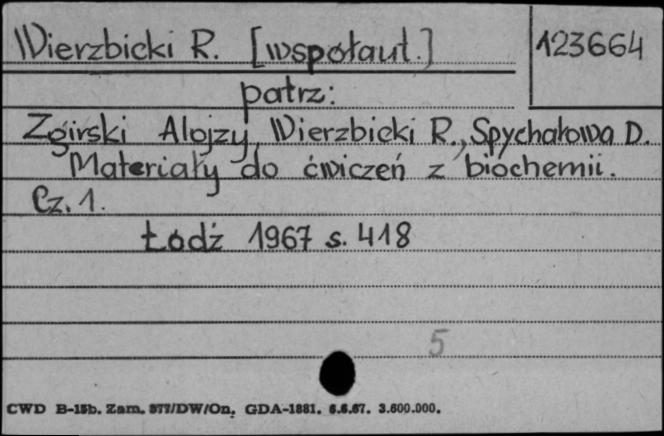 Wierzbicki R. [współaut.]
123664
patrz:
Zgirski Alojzy, Wierzbicki R., Spychałowa D.
Materiały do ćwiczeń z biochemii.
Cz. 1.
Łódź 1967 s. 418
5
CWD B-15b. Zam. 877/DW/On. GDA-1881. 6.6.67. 3.600.000.